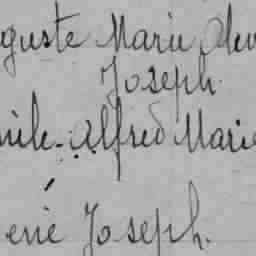 guste Marie Alex
Joseph.
mile. Alfred Marie
ené Joseph.